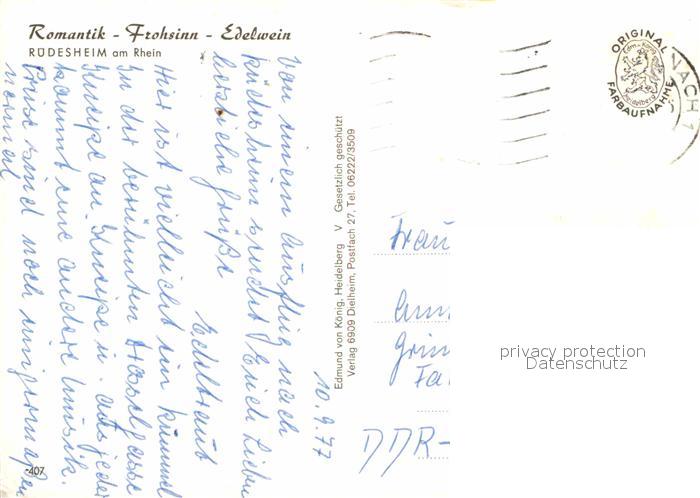 Romantik - Frohsinn - Edelwein
RÜDESHEIM am Rhein
10.9.77
Von einem Ausflug nach
Rüdesheim sendet Euch liebe
herzliche Grüße
Edeltraut
Hier ist vielleicht ein Rummel
In der berühmten Drosselgasse
Kneipe an Kneipe u. aus jeder
kommt eine andere Musik.
Preise sind noch einigermaßen
normal
407
Edmund von König, Heidelberg V Gesetzlich geschützt
Verlag 6909 Dielheim, Postfach 27, Tel. 06222/3509
ORIGINAL
Edm. König
Heidelberg
FARBAUFNAHME
NACH 1
Frau
DDR-
privacy protection
Datenschutz